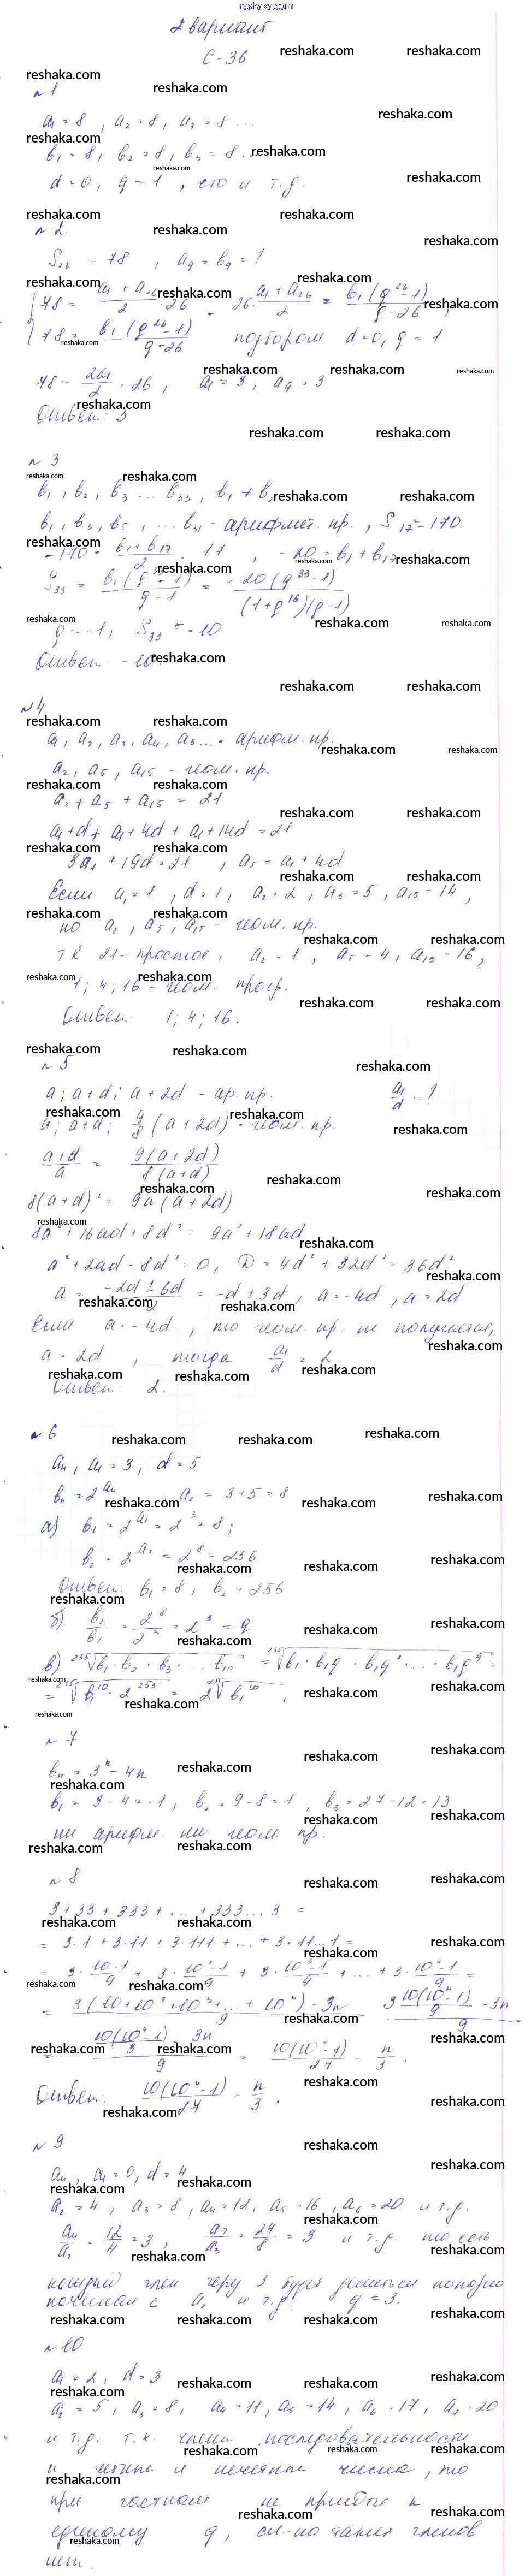 reshaka.com
2 вариант
С-36
№1
a₁ = 8, a₂ = 8, a₃ = 8 ...
b₁ = 8, b₂ = 8, b₃ = 8...
d = 0, q = 1, его и т.д.
№2
S₂₆ = 78, a₉ = b₉ = ?
78 = (a₁ + a₂₆)/2 · 26
26 · (a₁ + a₂₆)/2 = b₁(q²⁶ - 1)/(q - 26)
78 = b₁(q²⁶ - 1)/(q - 26) подбором d = 0, q = 1
78 = 2a₁/2 · 26, a₁ = 3, a₉ = 3
Ответ: 3
№3
b₁, b₂, b₃ ... b₃₃, b₁ ≠ b₂
b₁, b₃, b₅, ... b₃₁ - арифмет. пр., S₁₇ = -170
-170 = (b₁ + b₁₇)/2 · 17, -20 = b₁ + b₁₇
S₃₃ = b₁(q³³ - 1)/(q - 1) = -20(q³³ - 1)/((1 + q¹⁶)(q - 1))
q = -1, S₃₃ = -10
Ответ: -10
№4
a₁, a₂, a₃, a₄, a₅ ... - арифм. пр.
a₂, a₅, a₁₅ - геом. пр.
a₂ + a₅ + a₁₅ = 21
a₁ + d + a₁ + 4d + a₁ + 14d = 21
3a₁ + 19d = 21, a₅ = a₁ + 4d
Если a₁ = 1, d = 1, a₂ = 2, a₅ = 5, a₁₅ = 14,
но a₂, a₅, a₁₅ - геом. пр.
т.к 21 - простое, a₂ = 1, a₅ = 4, a₁₅ = 16,
1; 4; 16 - геом. прогр.
Ответ: 1; 4; 16.
№5
a; a+d; a+2d - ар. пр. a₁/d = ?
a; a+d; 9/8 (a+2d) - геом. пр.
(a+d)/a = 9(a+2d)/8(a+d)
8(a+d)² = 9a(a+2d)
8a² + 16ad + 8d² = 9a² + 18ad
a² + 2ad - 8d² = 0, D = 4d² + 32d² = 36d²
a = (-2d ± 6d)/2 = -d ± 3d, a = -4d, a = 2d
Если a = -4d, то геом. пр. не получается,
a = 2d, тогда a₁/d = 2.
Ответ: 2.
№6
aₙ, a₁ = 3, d = 5
bₙ = 2^aₙ, a₂ = 3 + 5 = 8
а) b₁ = 2^a₁ = 2³ = 8;
b₂ = 2^a₂ = 2⁸ = 256
Ответ: b₁ = 8, b₂ = 256
б) b₂/b₁ = 2⁸/2³ = 2⁵ = q
в) ²⁵⁵√(b₁ · b₂ · b₃ · ... · b₁₀) = ²⁵⁵√(b₁ · b₁q · b₁q² · ... · b₁q⁹) =
= ²⁵⁵√(b₁¹⁰ · 2²⁵⁵) = 2 ²⁵⁵√(b₁¹⁰).
№7
bₙ = 3ⁿ - 4n
b₁ = 3 - 4 = -1, b₂ = 9 - 8 = 1, b₃ = 27 - 12 = 13
ни арифм. ни геом. пр.
№8
3 + 33 + 333 + ... + 333...3 =
= 3·1 + 3·11 + 3·111 + ... + 3·11...1 =
= 3 · (10-1)/9 + 3 · (10²-1)/9 + 3 · (10³-1)/9 + ... + 3 · (10ⁿ-1)/9 =
= (3(10 + 10² + 10³ + ... + 10ⁿ) - 3n)/9 = (3 · 10(10ⁿ-1)/9 - 3n)/9 =
= (10(10ⁿ-1)/3 - 3n)/9 = 10(10ⁿ-1)/27 - n/3.
Ответ: 10(10ⁿ-1)/27 - n/3.
№9
aₙ, a₁ = 0, d = 4
a₂ = 4, a₃ = 8, a₄ = 12, a₅ = 16, a₆ = 20 и т.д.
a₄/a₂ = 12/4 = 3, a₇/a₃ = 24/8 = 3 и т.д. то есть
каждый член через 3 будет делиться попарно
начиная с a₂ и т.д. q = 3.
№10
a₁ = 2, d = 3
a₂ = 5, a₃ = 8, a₄ = 11, a₅ = 14, a₆ = 17, a₇ = 20
и т.д. т.к. члены последовательности
и четные и нечетные числа, то
при частном не придем к
единому q, сл-но таких членов
нет.